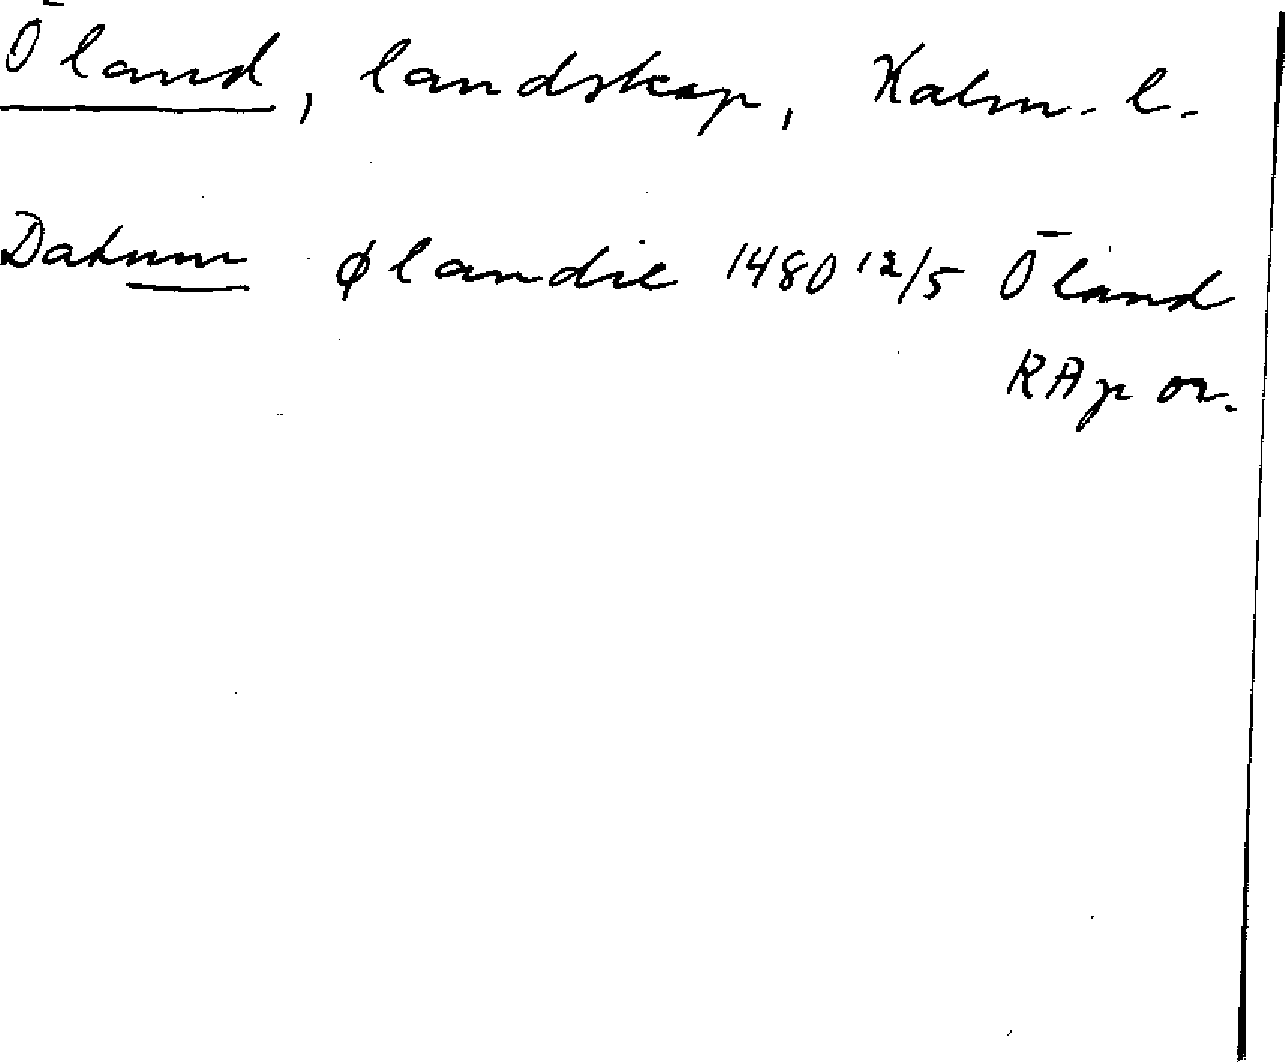 Öland, landskap, Kalm. l.
Datum ølandie 1480 12/5 Öland
RAp or.